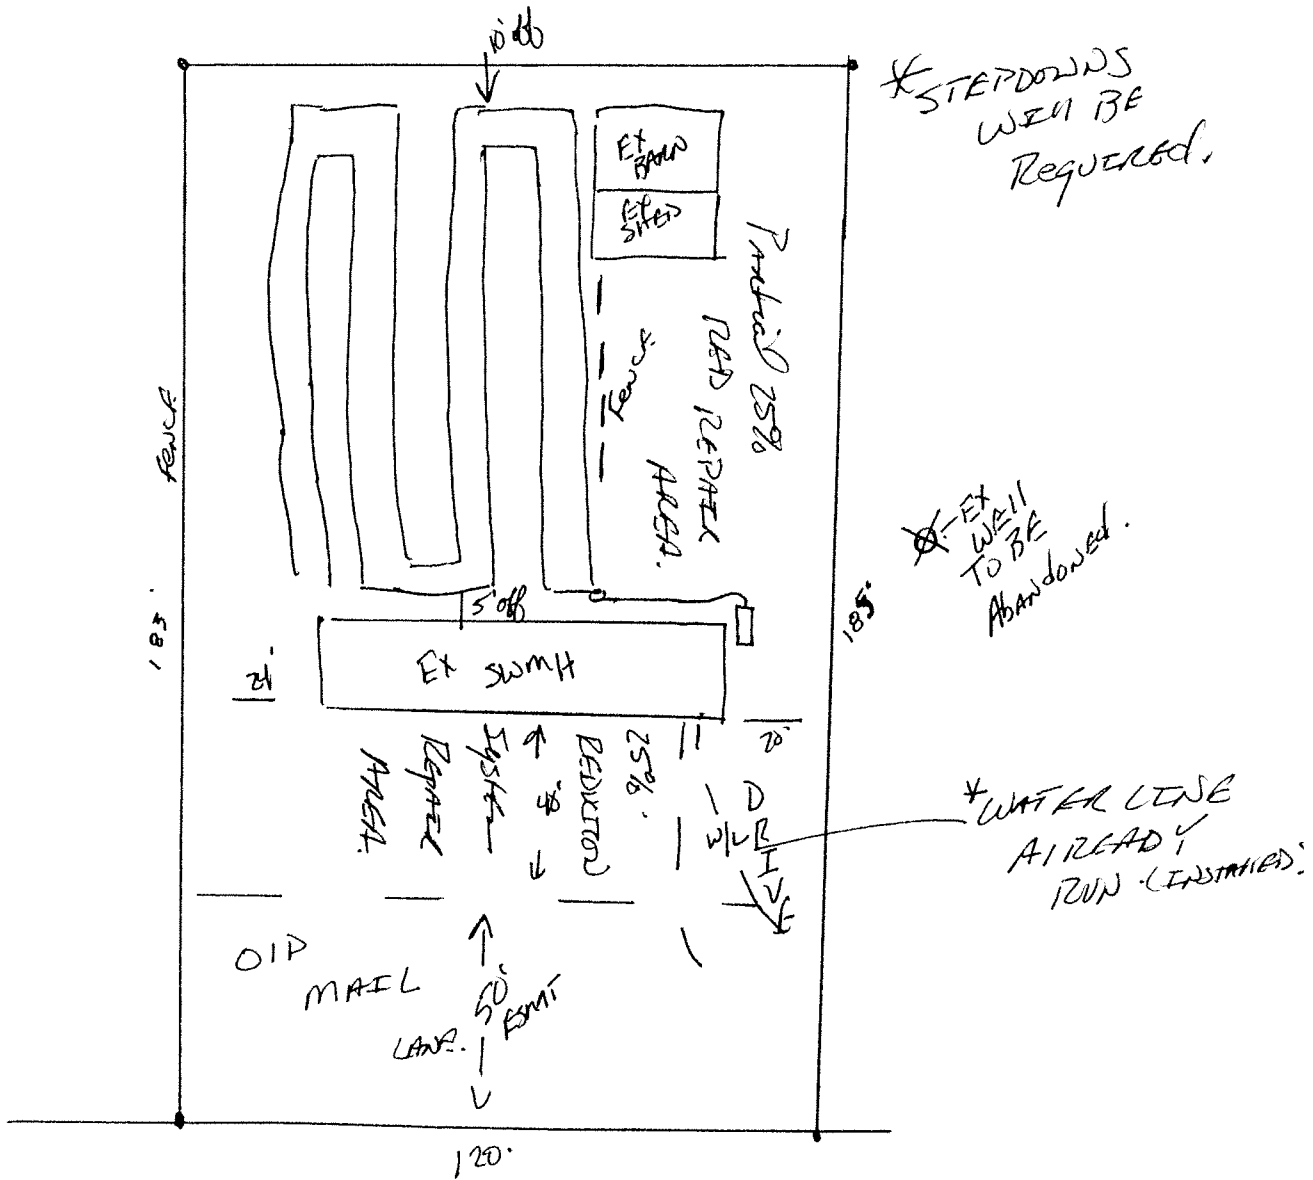 10' off
* STEPDOWNS
WILL BE
REQUIRED.
EX
BARN
EX
SHED
Partial 25%
RAD REPAIR
AREA.
Fence
FENCE
EX
WELL
TO BE
Abandoned.
183'
185'
5' off
EX SWMH
20'
25%
REDUCTION
System
REPAIR
AREA.
40'
DRIVE
W/L
* WATER LINE
ALREADY
RUN (INSTALLED)
OLD
MAIL
LANE.
50'
ESMT
120'